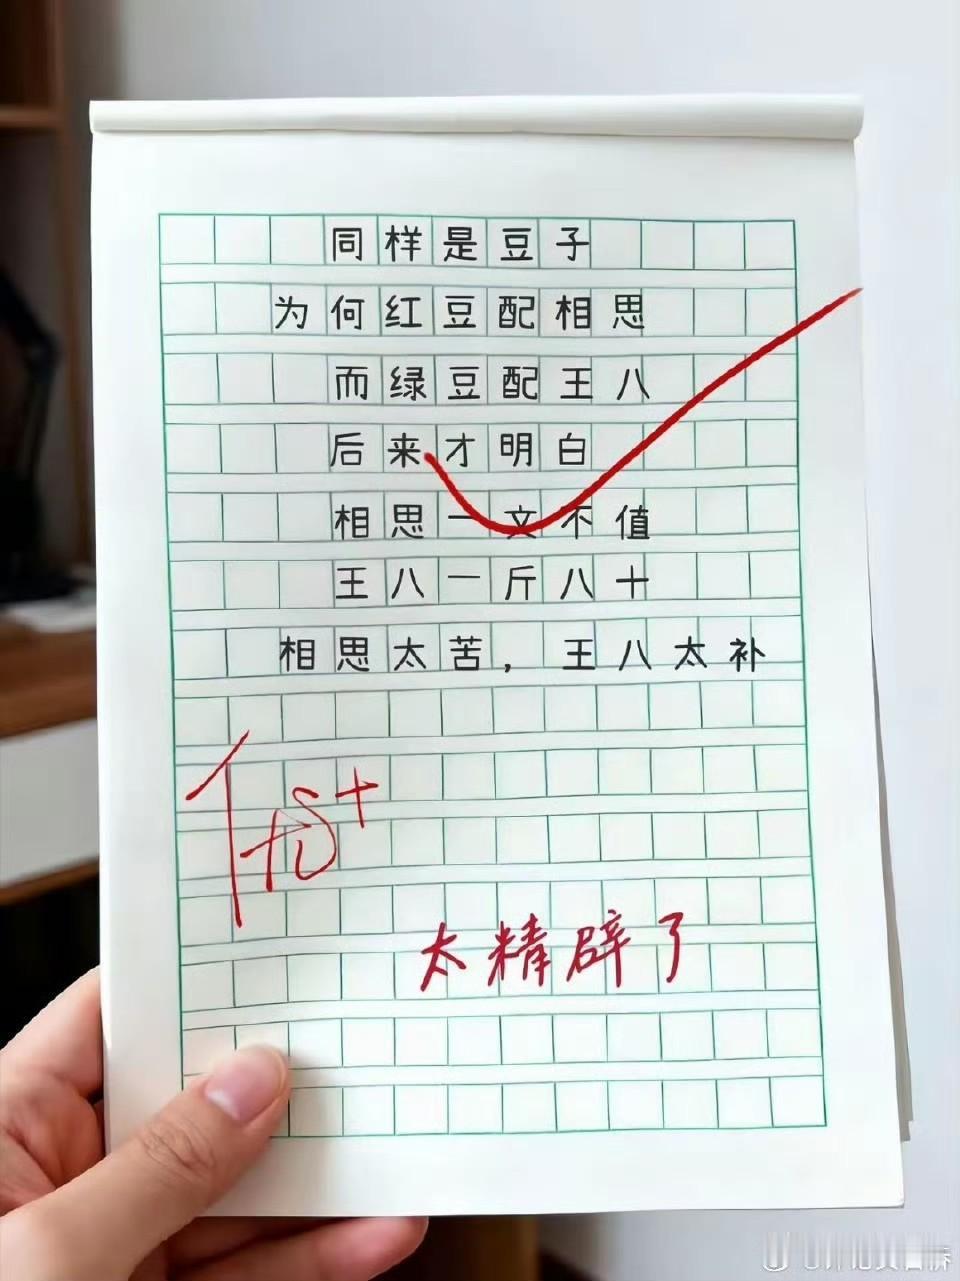 同样是豆子
为何红豆配相思
而绿豆配王八
后来才明白
相思一文不值
王八一斤八十
相思太苦，王八太补
优+
太精辟了